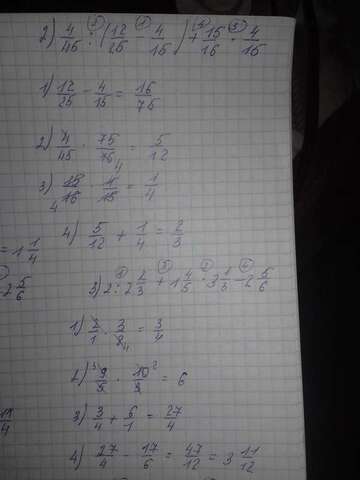 2) 4/45 : (12/25 - 4/15) + 15/16 · 4/15
1) 12/25 - 4/15 = 16/75
2) 4/45 · 75/16 4 = 5/12
3) 15/16 4 · 4/15 = 1/4
4) 5/12 + 1/4 = 2/3
= 1 1/4
3) 2 : 2 2/3 + 1 4/5 · 3 1/3 - 2 5/6
2 5/6
1) 2/1 · 3/8 4 = 3/4
2) 3 9/5 · 10/3 2 = 6
3) 3/4 + 6/1 = 27/4
4) 27/4 - 17/6 = 47/12 = 3 11/12